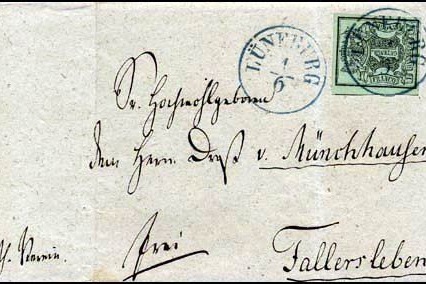 LÜNEBURG
1
6
LÜNEBURG
Sr. Hochwohlgeboren
dem Herrn Drost v. Münchhausen
frei
Fallersleben
Verein